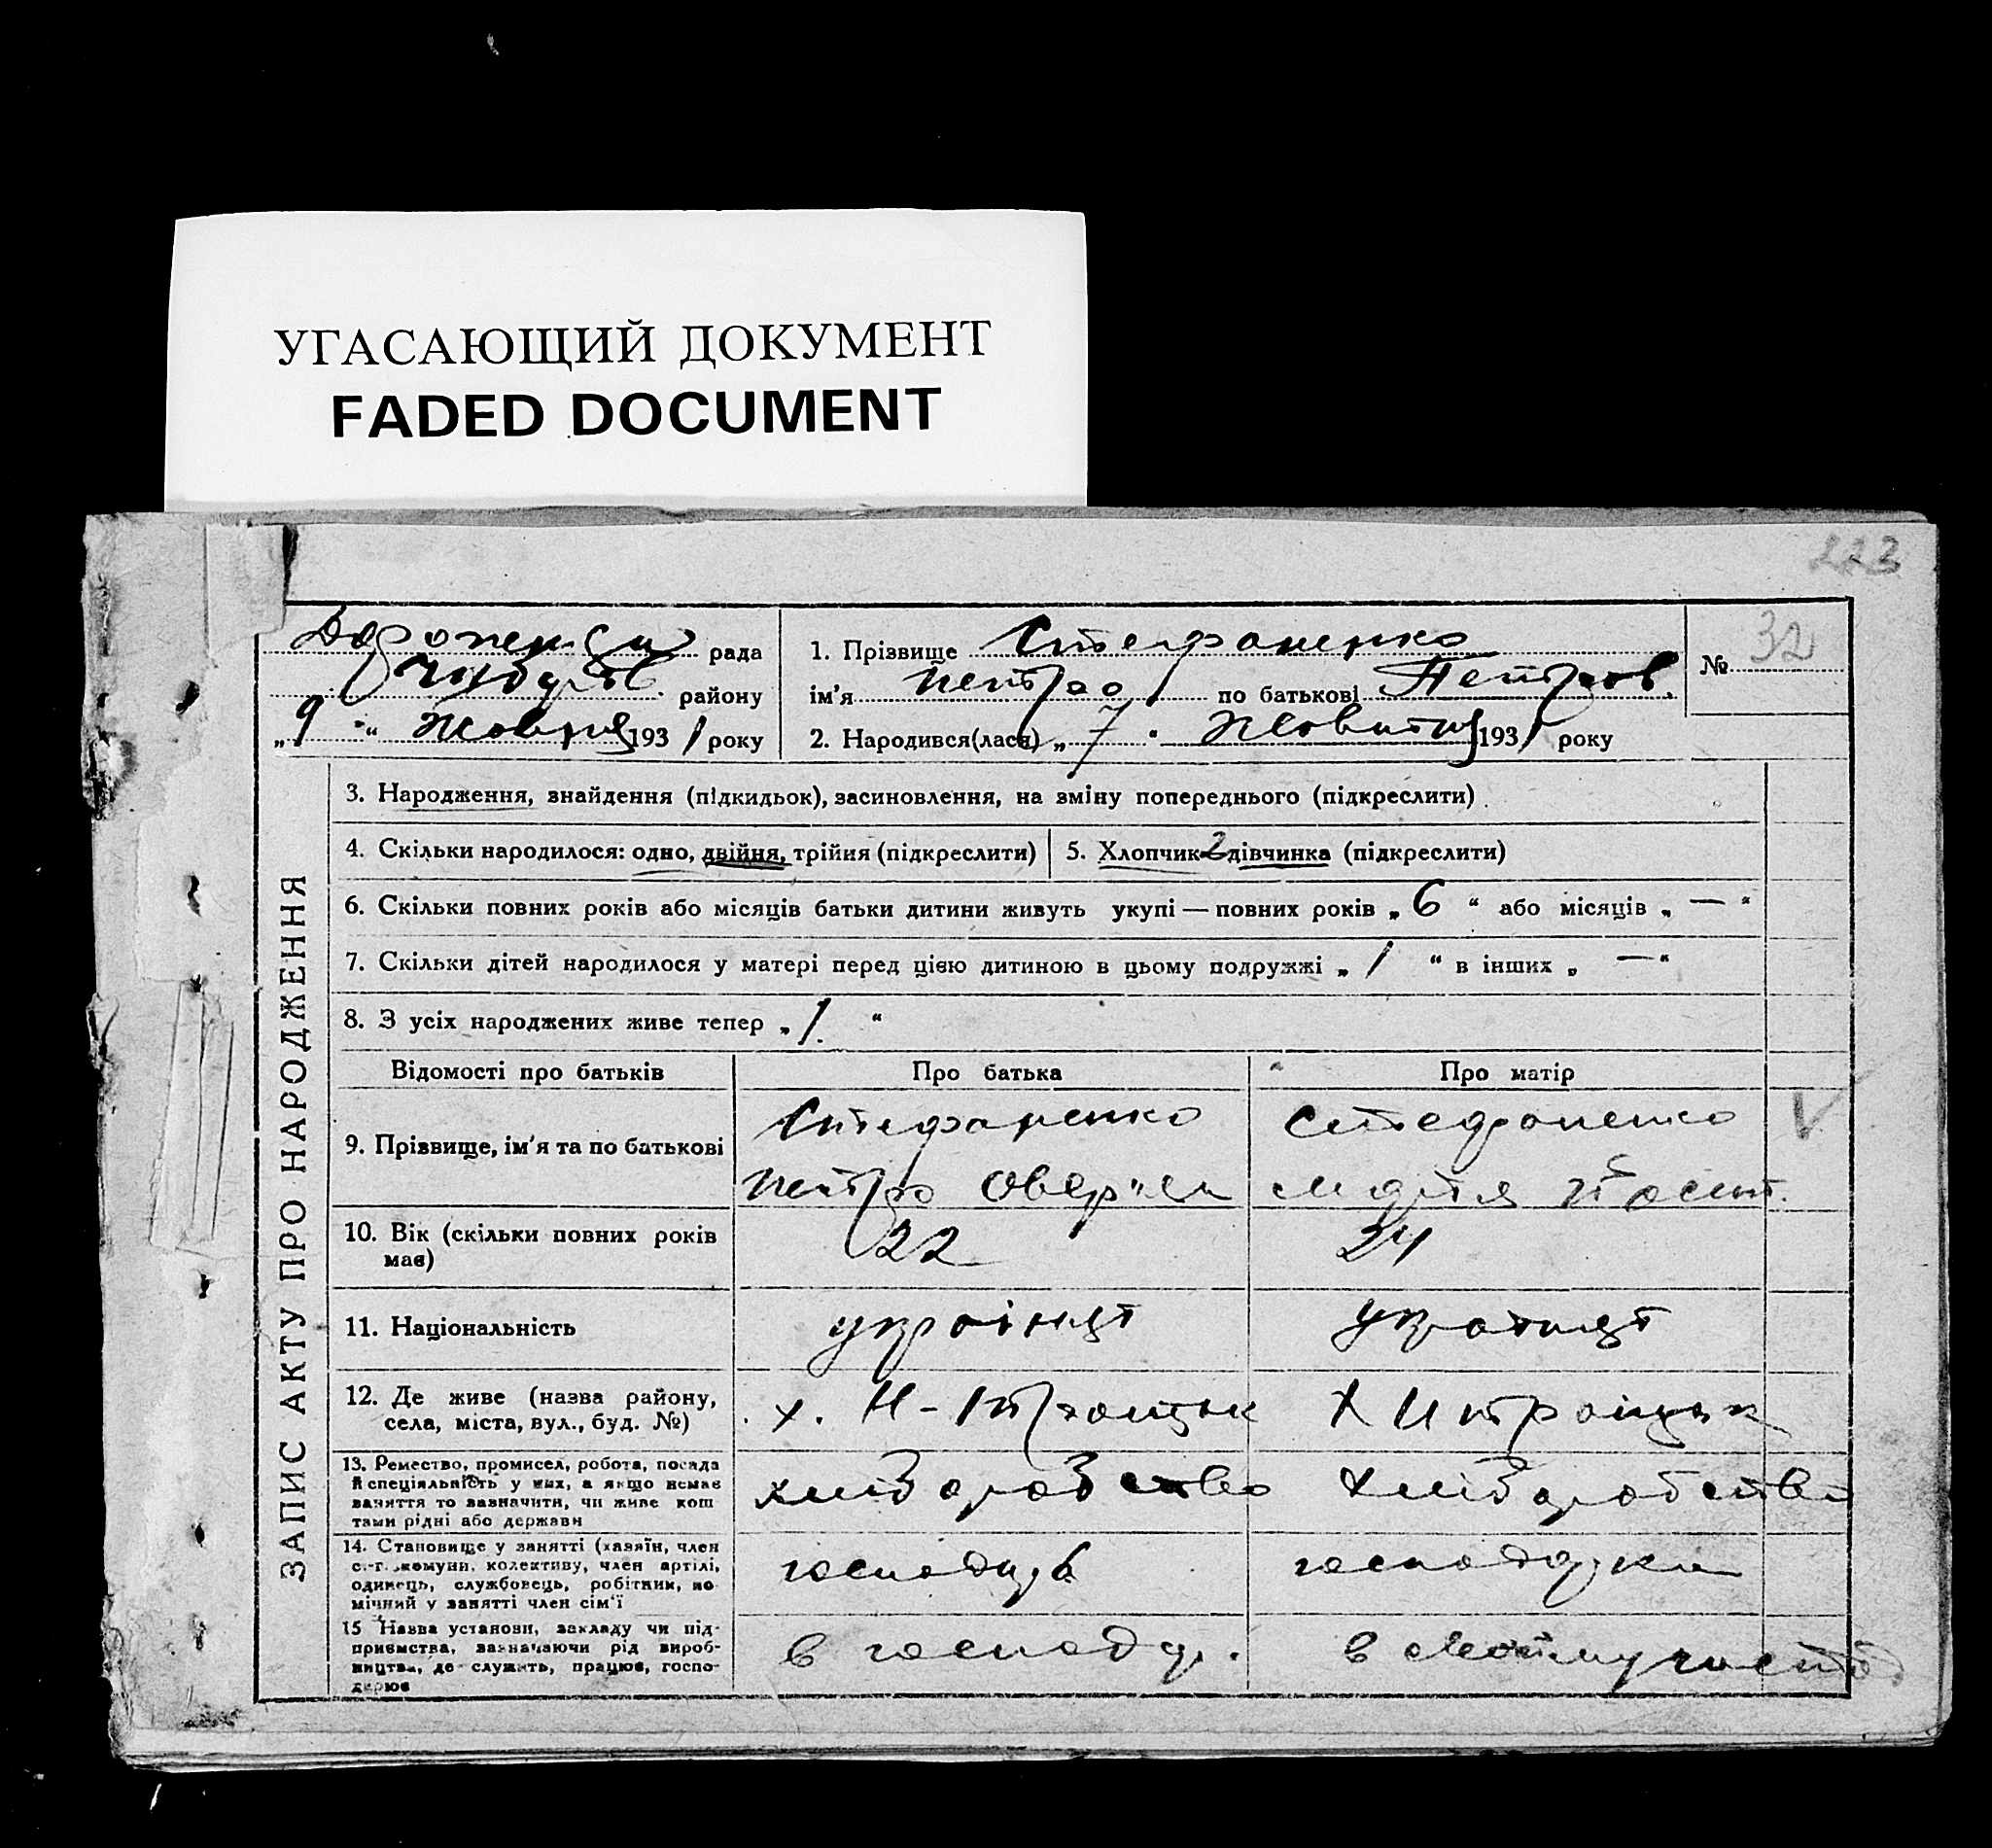 УГАСАЮЩИЙ ДОКУМЕНТ
FADED DOCUMENT
223
рада
району
„9“ Жовтня 1931 року
1. Прізвище Стефаненко
ім’я Петро по батькові Петров.
2. Народився(лася) „7“ Жовтня 1931 року
№ 32
ЗАПИС АКТУ ПРО НАРОДЖЕННЯ
3. Народження, знайдення (підкидьок), засиновлення, на зміну попереднього (підкреслити)
4. Скільки народилося: одно, двійня, трійня (підкреслити)
5. Хлопчик 2 дівчинка (підкреслити)
6. Скільки повних років або місяців батьки дитини живуть укупі — повних років „6“ або місяців „—“
7. Скільки дітей народилося у матері перед цією дитиною в цьому подружжі „1“ в інших „—“
8. З усіх народжених живе тепер „1.“
Відомості про батьків
Про батька
Про матір
9. Прізвище, ім’я та по батькові
Стефаненко
Петро
Стефаненко
10. Вік (скільки повних років
має)
22
24
11. Національність
українці
12. Де живе (назва району,
села, міста, вул., буд. №)
х.
Х
13. Ремество, промисел, робота, посада
й спеціяльність у них, а якщо немає
заняття то зазначити, чи живе кош
тами рідні або держави
хліборобство
хліборобство
14. Становище у занятті (хазяїн, член
с.-г. комуни, колективу, член артілі,
одинець, службовець, робітник, по
мічний у занятті член сім’ї
господар
15 Назва установи, закладу чи під-
приємства, зазначаючи рід вироб-
ництва, де служить, працює, госпо-
дарює
в господ.
в